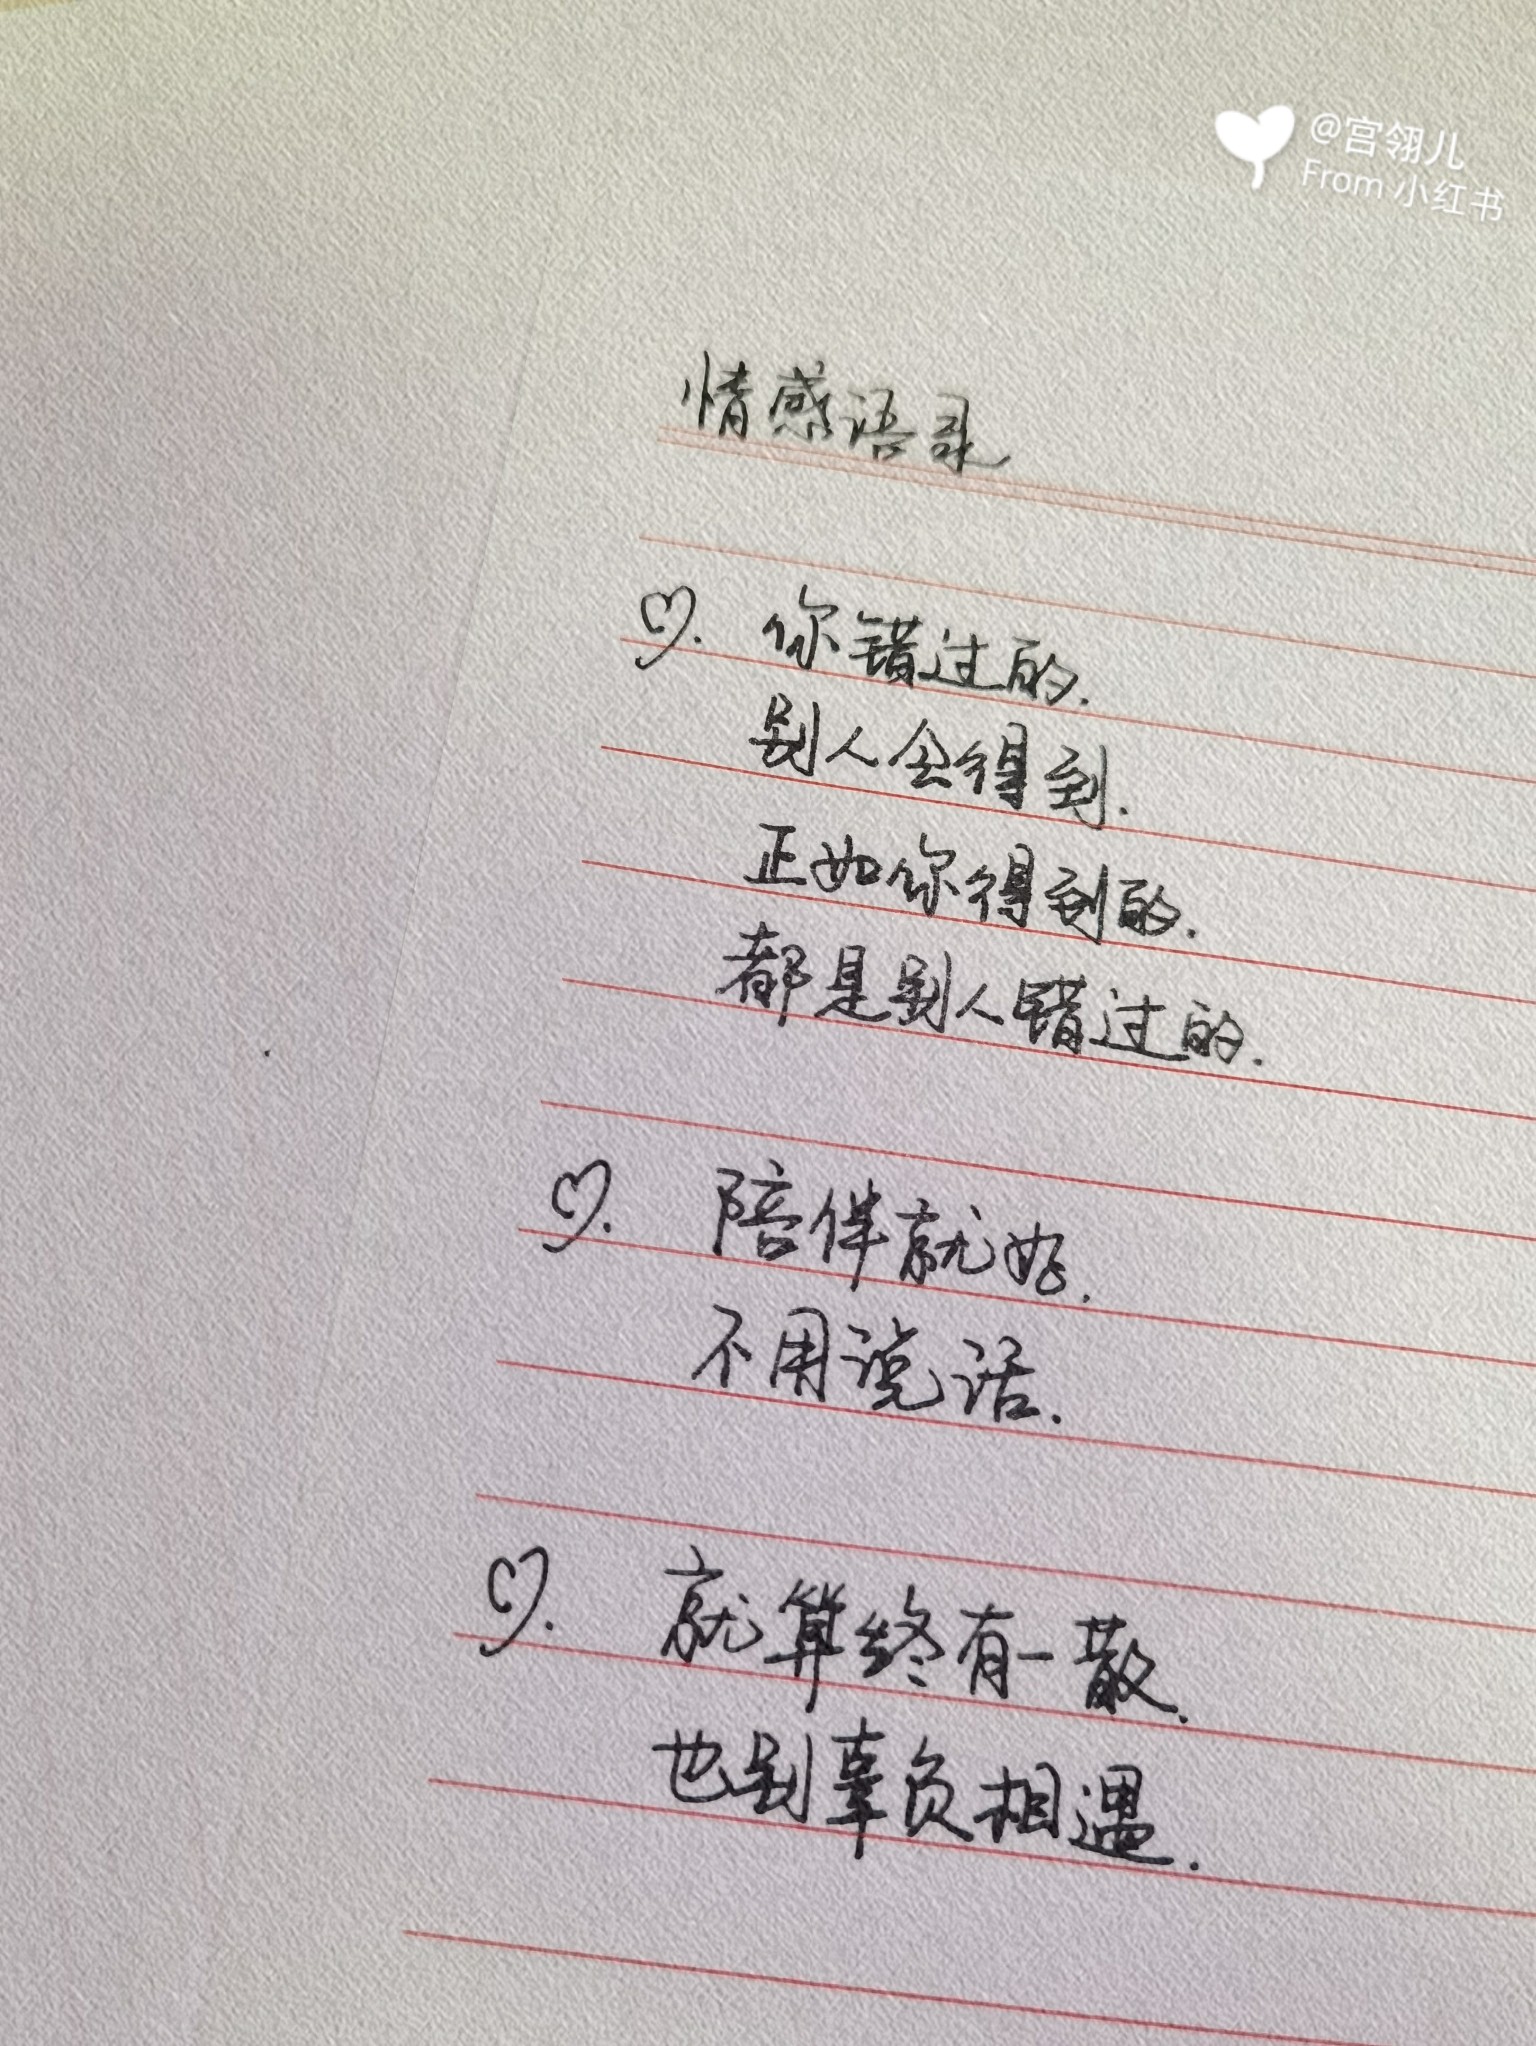 @宫翎儿
From 小红书
情感语录
♡. 你错过的.
别人会得到.
正如你得到的.
都是别人错过的.
♡. 陪伴就好.
不用说话.
♡. 就算终有一散.
也别辜负相遇.